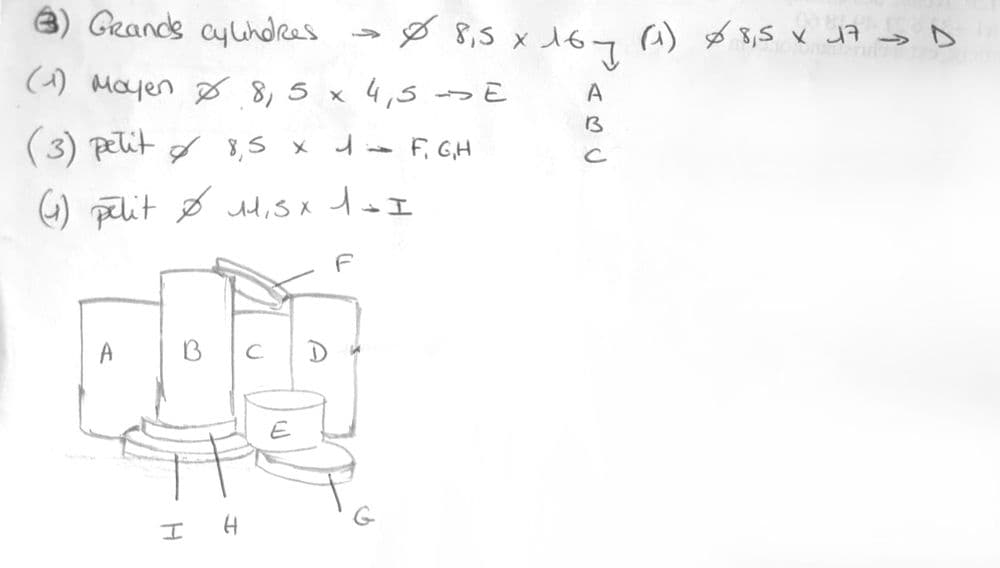 (3) Grands cylindres → ø 8,5 x 16 → (1) ø 8,5 x 17 → D
(1) Moyen ø 8,5 x 4,5 → E
A
B
(3) petit ø 8,5 x 1 - F, G, H
C
(1) petit ø 11,5 x 1 - I
F
A B C D
E
I H G